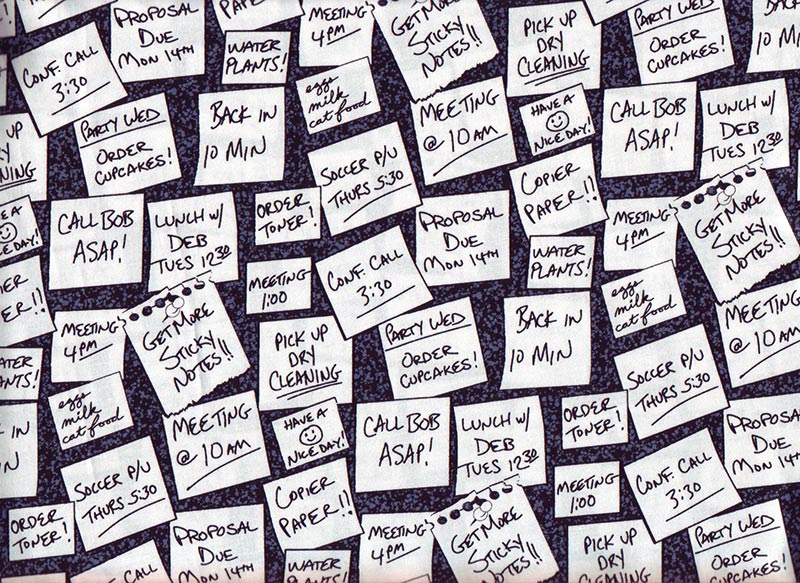 PROPOSAL
DUE
MON 14TH
PAPER!!
MEETING
4PM
GET MORE
STICKY
NOTES!!
PICK UP
DRY
CLEANING
PARTY WED
ORDER
CUPCAKES!
BACK IN
10 M
CONF. CALL
3:30
WATER
PLANTS!
eggs
milk
cat food
UP
Y
NING
PARTY WED
ORDER
CUPCAKES!
BACK IN
10 MIN
SOCCER P/U
THURS 5:30
MEETING
@ 10 AM
HAVE A
NICE DAY!
CALL BOB
ASAP!
LUNCH W/
DEB
TUES 12:30
COPIER
PAPER!!
E A
DAY!
CALL BOB
ASAP!
LUNCH W/
DEB
TUES 12:30
ORDER
TONER!
PROPOSAL
DUE
MON 14TH
MEETING
4PM
GET MORE
STICKY
NOTES!!
IER
ER!!
MEETING
1:00
CONF. CALL
3:30
WATER
PLANTS!
eggs
milk
cat food
MEETING
4PM
GET MORE
STICKY
NOTES!!
PICK UP
DRY
CLEANING
PARTY WED
ORDER
CUPCAKES!
BACK IN
10 MIN
MEETING
@ 10 AM
ATER
ANTS!
eggs
milk
cat food
SOCCER P/U
THURS 5:30
IN
N
MEETING
@ 10 AM
HAVE A
NICE DAY!
CALL BOB
ASAP!
LUNCH W/
DEB
TUES 12:30
ORDER
TONER!
PROPOSAL
DUE
MON 14TH
SOCCER P/U
THURS 5:30
COPIER
PAPER!!
MEETING
1:00
CONF. CALL
3:30
ORDER
TONER!
PROPOSAL
DUE
MON 14TH
MEETING
4PM
GET MORE
STICKY
NOTES!!
PICK UP
DRY
CLEANING
PARTY WED
ORDER
CUPCAKES!
CONF. CALL
WATER
PLANTS!